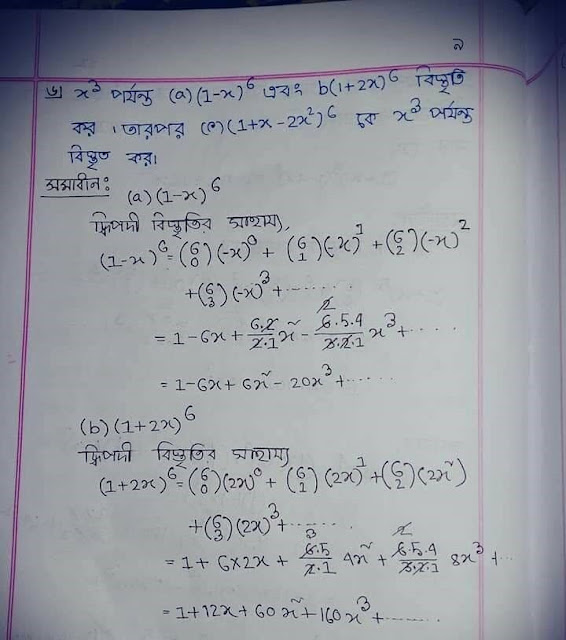 ৯
৬) x³ পর্যন্ত (a) (1-x)⁶ এবং b(1+2x)⁶ বিস্তৃতি
কর। তারপর (c) (1+x-2x²)⁶ কে x³ পর্যন্ত
বিস্তৃত কর।
সমাধান: (a) (1-x)⁶
দ্বিপদী বিস্তৃতির সাহায্যে,
(1-x)⁶ = (6 0)(-x)⁰ + (6 1)(-x)¹ + (6 2)(-x)²
+ (6 3)(-x)³ + ......
= 1-6x + 6.2/2.1 x² - 6.5.4/3.2.1 x³ + ....
= 1-6x+6x² - 20x³ + .....
(b) (1+2x)⁶
দ্বিপদী বিস্তৃতির সাহায্যে
(1+2x)⁶ = (6 0)(2x)⁰ + (6 1)(2x)¹ + (6 2)(2x²)
+ (6 3)(2x)³ + ......
= 1 + 6×2x + 6.5/2.1 4x² + 6.5.4/3.2.1 8x³ + ...
= 1+12x+60x²+160x³ + .......